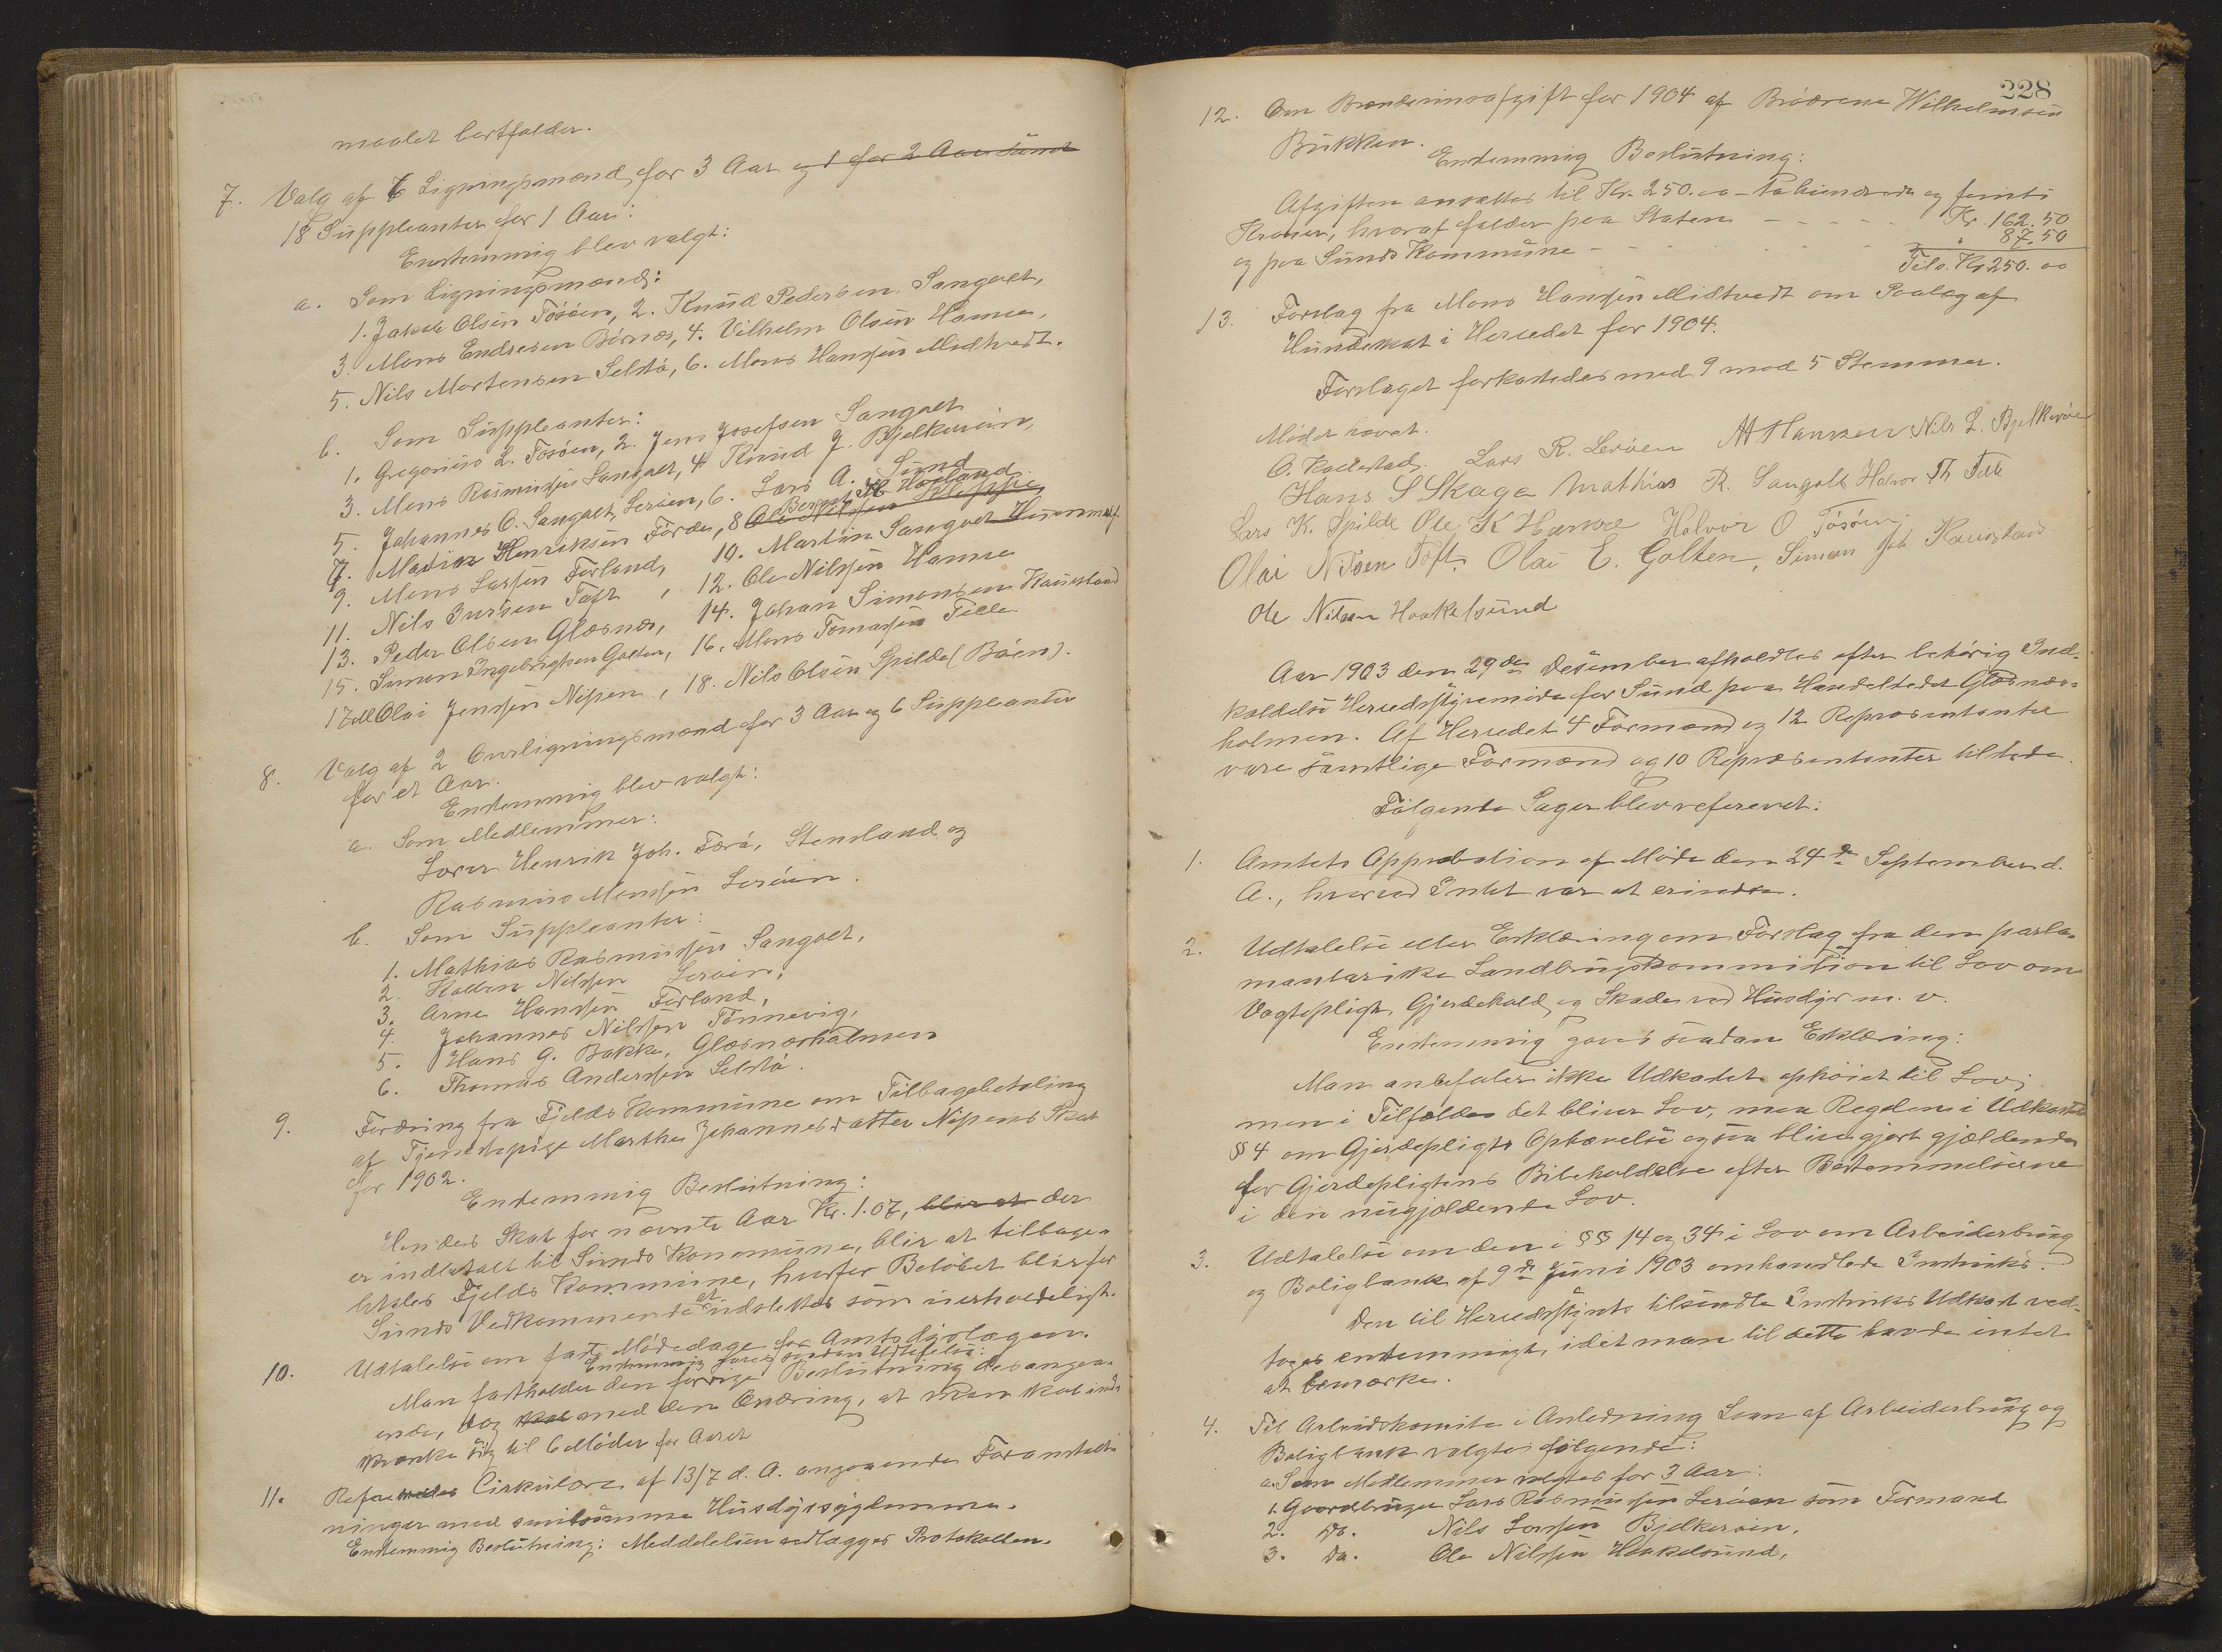 maalet bortfalder.
7. Valg af 6 Ligningsmænd for 3 Aar og 1 for 2 Aar samt
18 Suppleanter for 1 Aar:
Enstemmig blev valgt:
a. Som Ligningsmænd:
1. Jakob Olsen Tösöen, 2. Knud Pedersen Sangolt,
3. Mons Endresen Börnes, 4. Vilhelm Olsen Hamre,
5. Nils Mortensen Selstö, 6. Mons Hansen Midtvedt.
b. Som Suppleanter:
1. Gregorius L. Tösöen, 2. Jens Josefsen Sangolt
3. Mons Rasmussen Sangolt, 4 Knud J. Bjelkeröen,
5. Johannes O. Sangolt, Leröen, 6. Lars A. Sund
7. Martin Henriksen Förde, 8 Ole Nilssen Kleppe, Bernt Hobland
9. Mons Larssen Forland, 10. Martin Sangolt Hummels.
11. Nils Iversen Toft, 12. Ole Nilssen Hamre
13. Peder Olsen Glesnes, 14. Johan Simonsen Kausland
15. Simon Ingebrigtsen Golten, 16. Mons Tomassen Telle
17 Olai Jenssen Nipen, 18. Nils Olsen Spilde (Böen).
8. Valg af 2 Overligningsmænd for 3 Aar og 6 Suppleanter
for et Aar.
Enstemmig blev valgt:
a. Som Medlemmer:
Lærer Henrik Joh. Færö, Stensland og
Rasmus Monssen Leröen.
b. Som Suppleanter:
1. Mathias Rasmussen Sangolt,
2. Nilssen Leröen,
3. Arne Hanssen Forland,
4. Johannes Nilssen Tönnevig,
5. Hans G. Bakke, Glesnæsholmen
6. Thomas Anderssen Selstö.
9. Fordring fra Fjelds Kommune om Tilbagebetaling
af Tjenestepige Martha Johannesdatter Nipens Skat
for 1902.
Enstemmig Beslutning:
Hendes Skat for nævnte Aar Kr. 1.07, blir at der
er indbetalt til Sunds Kommune, blir at tilbage-
betales Fjelds Kommune, hvorfor Belöbet blir for
Sunds Vedkommende at udslettes som uerholdeligt.
10. Udtalelse om faste Mödedage for Amtsdyrlægen.
Enstemmig gaves saadan Udtalelse:
Man fastholder den forrige Beslutning desangaa-
ende, dog skal med den Ændring, at man kal ind-
skrænke sig til 6 Möder for Aaret
11. Refereredes Cirkulære af 13/7 d. A. angaaende Foranstalt-
ninger med smitsomme Husdyrsygdomme.
Enstemmig Beslutning: Meddelelsen vedlægges Protokollen.
228
12. Om Brændevinsafgift for 1904 af Brödrene Wilhelmsen
Bukken.
Enstemmig Beslutning:
Afgiften ansættes til Kr. 250.00 – To hundrede og femti
Kroner, hvoraf falder paa Staten - - - - Kr. 162.50
og paa Sunds Kommune - - - - " 87.50
Tils. Kr 250.00
13. Forslag fra Mons Hanssen Midtvedt om Paalæg af
Hundeskat i Herredet for 1904.
Forslaget forkastedes med 9 mod 5 Stemmer.
Mödet hævet.
O. Kallestad. Lars R. Leröen M Hanssen Nils L. Bjelkeröen
Hans S Skage Mathias R. Sangolt Halvor Th Tele
Lars K. Spilde Ole K Hamre Halvor O Tösöen
Olai Nilsen Toft. Olai E. Golten, Simon Joh Kausland
Ole Nilsen Haakelsund
Aar 1903 den 29de Desember afholdtes efter behörig Ind-
kaldelse Herredsstyremöde for Sund paa Handelstedet Glesnæs-
holmen. Af Herredet 4 Formænd og 12 Repræsentanter
vare samtlige Formænd og 10 Repræsentanter tilstede.
Fölgende Sager blev refereret:
1. Amtets Approbation af Möde den 24de September d.
A., hvorved Intet var at erindre.
2. Udtalelse eller Erklæring om Forslag fra den parla-
mentariske Landbrugskommission til Lov om
Vogtepligt, Gjerdehold og Skade ved Husdyr m. v.
Enstemmig gaves saadan Erklæring:
Man anbefaler ikke Udkastet ophöiet til Lov;
men i Tilfælde det bliver Lov, maa Reglen i Udkastets
§ 4 om Gjerdepligts Ophævelse ogsaa blive gjort gjældende
for Gjerdepligtens Bibeholdelse efter Bestemmelserne
i den nugjældende Lov.
3. Udtalelse om den i §§ 14 og 34 i Lov om Arbeiderbrug
og Boligbank af 9de Juni 1903 omhandlede Instruks.
Den til Herredsstyret tilsendte Instruks Udkast ved-
toges enstemmigt, idet man til dette havde intet
at bemærke.
4. Til Arbeidskomite i Anledning Loven af Arbeiderbrug og
Boligbank valgtes fölgende:
a. Som Medlemmer valgtes for 3 Aar:
1. Gaardbruger Lars Rasmussen Leröen som Formand
2. Do. Nils Larssen Bjelkeröen,
3. Do. Ole Nilssen Haakelsund,